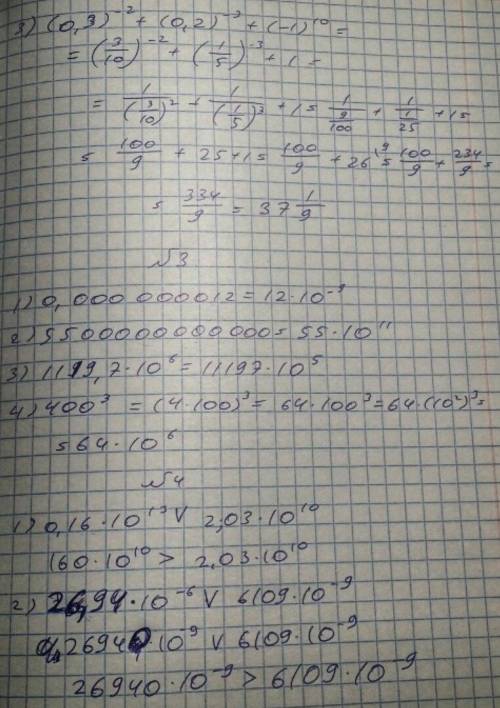 3) (0,3)⁻² + (0,2)⁻³ + (-1)¹⁰ =
= (3/10)⁻² + (1/5)⁻³ + 1 =
= 1/(3/10)² + 1/(1/5)³ + 1 = 1/(9/100) + 1/(1/25) + 1 =
= 100/9 + 25 + 1 = 100/9 + 26 \⁹ = 100/9 + 234/9 =
= 334/9 = 37 1/9
№3
1) 0,000 000 000 012 = 12·10⁻⁹
2) 5500000000000 = 55·10¹¹
3) 1119,7·10⁶ = 11197·10⁵
4) 400³ = (4·100)³ = 64·100³ = 64·(10²)³ =
= 64·10⁶
№4
1) 0,16·10¹³ V 2,03·10¹⁰
160·10¹⁰ > 2,03·10¹⁰
2) 26,94·10⁻⁶ V 6109·10⁻⁹
26940·10⁻⁹ V 6109·10⁻⁹
26940·10⁻⁹ > 6109·10⁻⁹